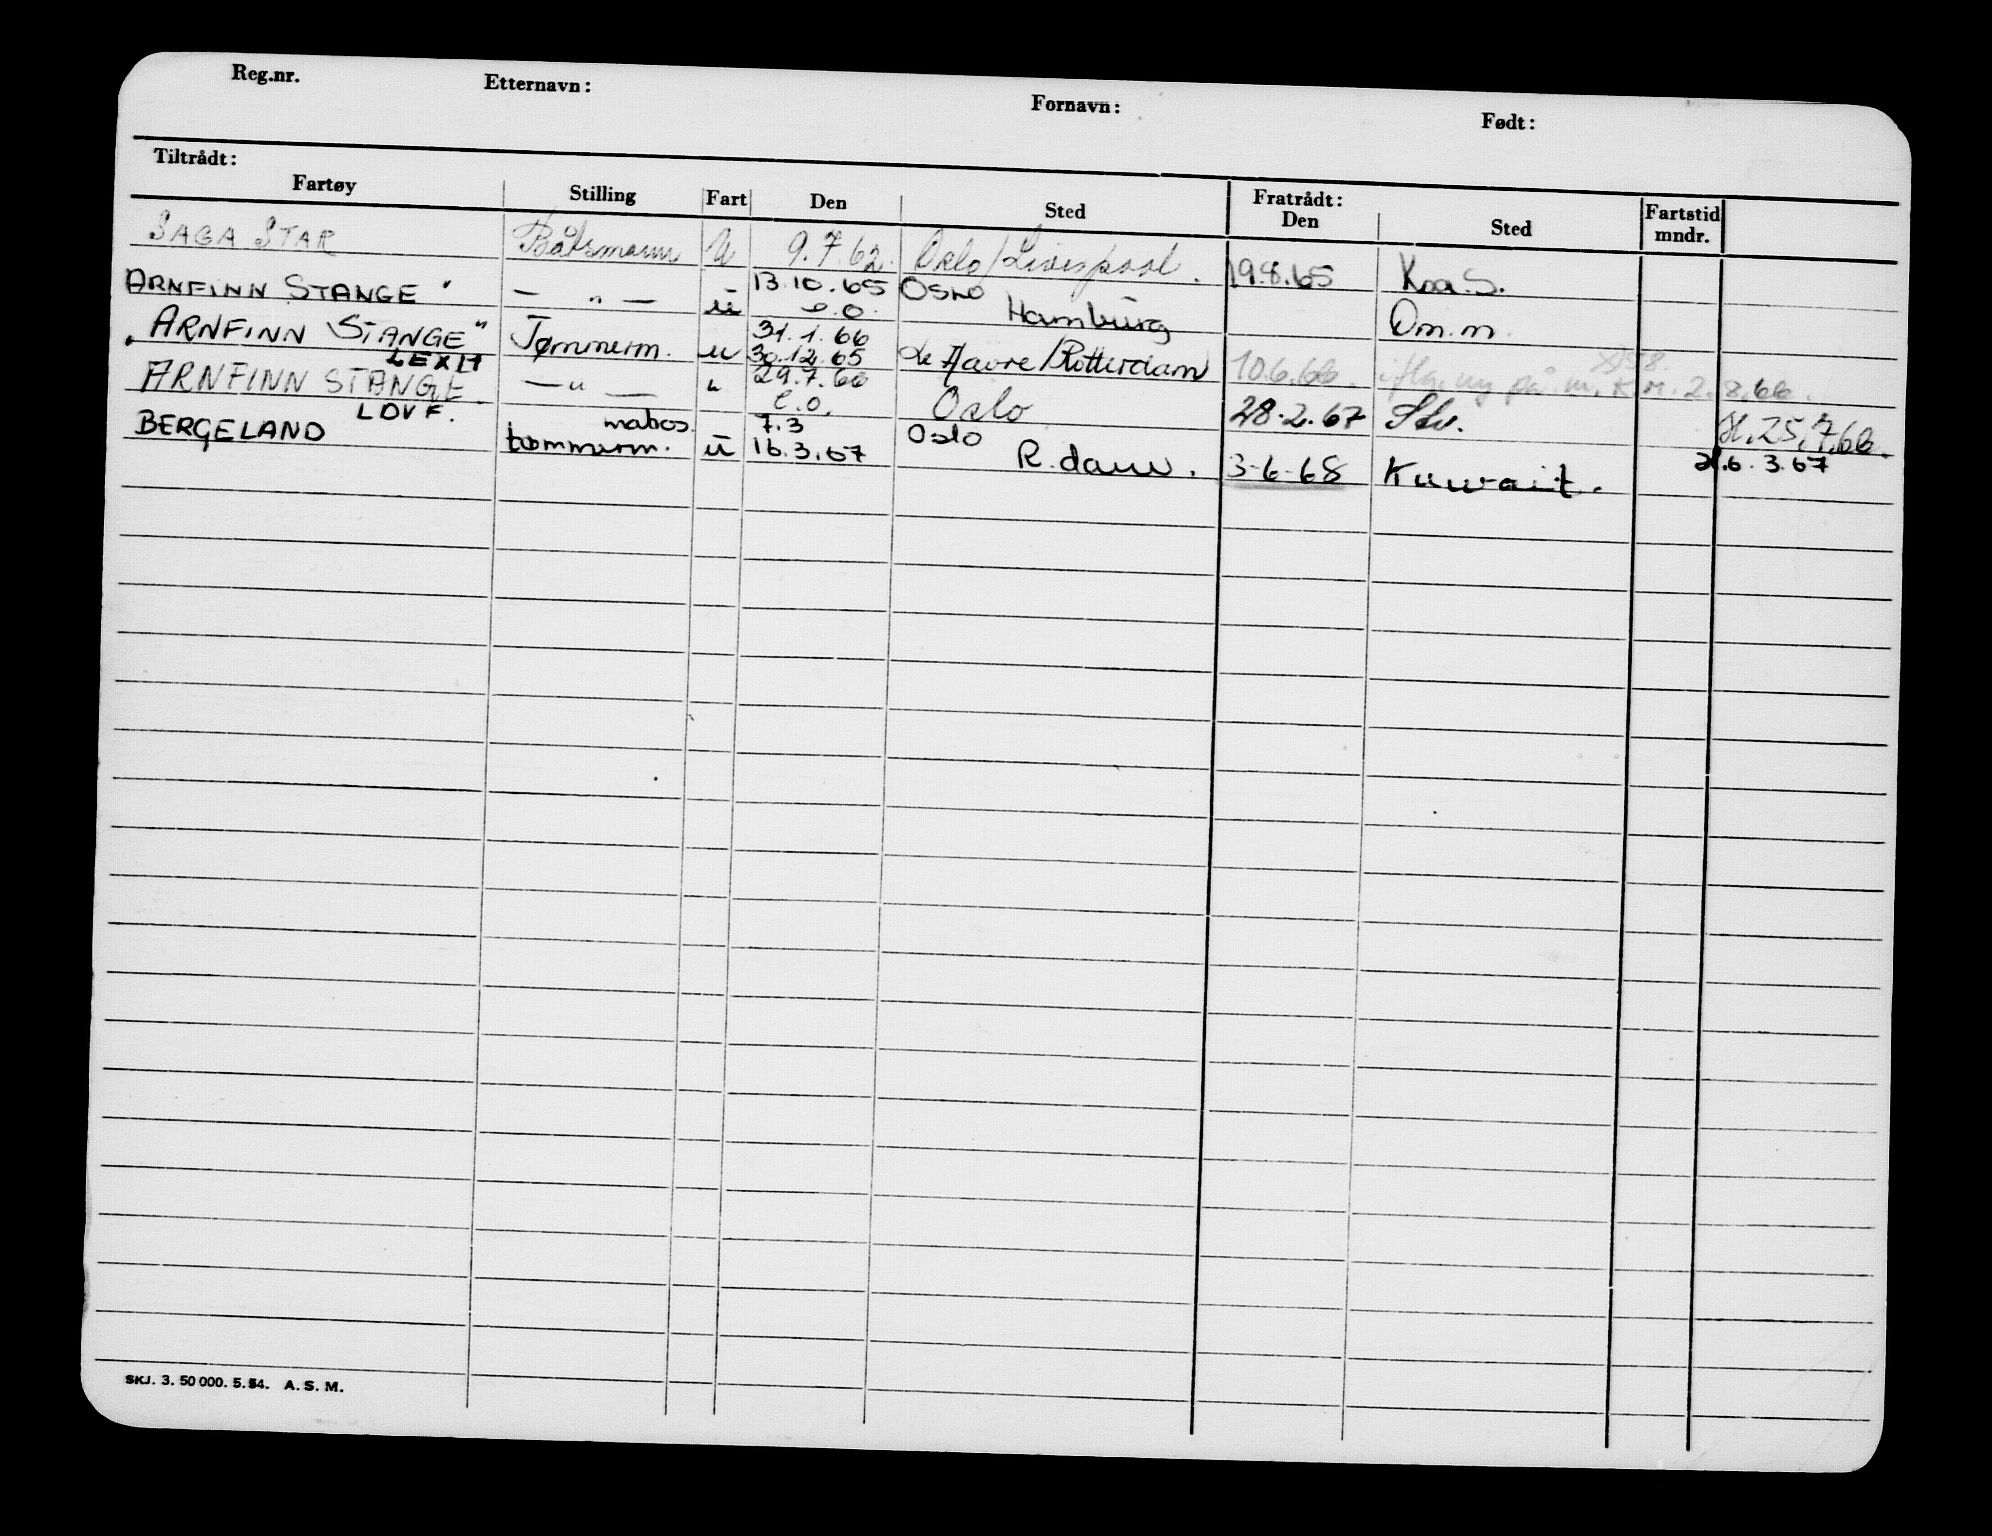 Reg.nr. Etternavn: Fornavn: Født:
Tiltrådt: Fratrådt:
Fartøy Stilling Fart Den Sted Den Sted Fartstid mndr.
SAGA STAR Båtsmann U 9.7.62. Oslo/Liverpool. 19.8.65 K.a.S.
ARNFINN STANGE " — " — u 13.10.65 e.o. Oslo Hamburg Om.m
"ARNFINN STANGE" Tømmerm. u 31.1.66 30.12.65 Le Havre/Rotterdam 10.6.66. ny på m. K.M. 2.8.66.
LEXH
ARNFINN STANGE — " — " 29.7.66 e.o. Oslo 28.2.67 Stv. H. 25.7.66.
LDVF. matros 7.3 Oslo
BERGELAND tømmerm. u 16.3.67 R.dam. 3-6-68 Kuwait. H.6.3.67
SKJ. 3. 50 000. 5.54. A. S. M.